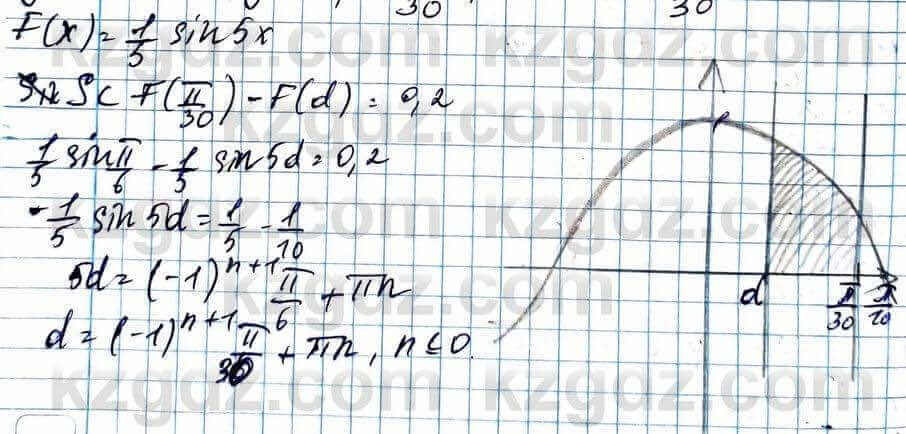 30 30
F(x) = 1/5 sin 5x
S< F(π/30) - F(d) = 0,2
1/5 sin π/6 - 1/5 sin 5d = 0,2
-1/5 sin 5d = 1/5 - 1/10
5d = (-1)^n+1 π/6 + πn
d = (-1)^n+1 π/30 + πn, n ≤ 0.
d π/30 π/10
kzgdz.com
kzgdz.com
kzgdz.com
kzgdz.com
kzgdz.com